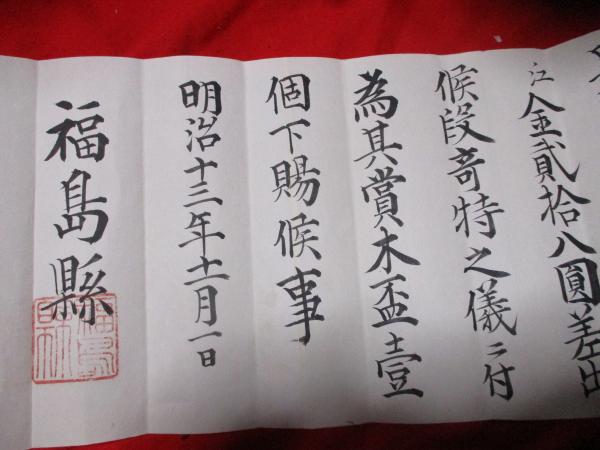 江金貳拾八圓差出
候段竒特之儀ニ付
為其賞木盃壹
個下賜候事
明治十三年十一月一日
福島縣